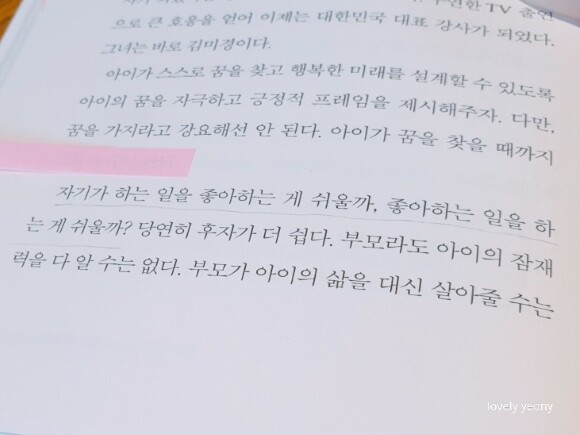 우연한 TV 출연
으로 큰 호응을 얻어 이제는 대한민국 대표 강사가 되었다.
그녀는 바로 김미경이다.
아이가 스스로 꿈을 찾고 행복한 미래를 설계할 수 있도록
아이의 꿈을 자극하고 긍정적 프레임을 제시해주자. 다만,
꿈을 가지라고 강요해선 안 된다. 아이가 꿈을 찾을 때까지
자기가 하는 일을 좋아하는 게 쉬울까, 좋아하는 일을 하
는 게 쉬울까? 당연히 후자가 더 쉽다. 부모라도 아이의 잠재
력을 다 알 수는 없다. 부모가 아이의 삶을 대신 살아줄 수는
lovely yeony